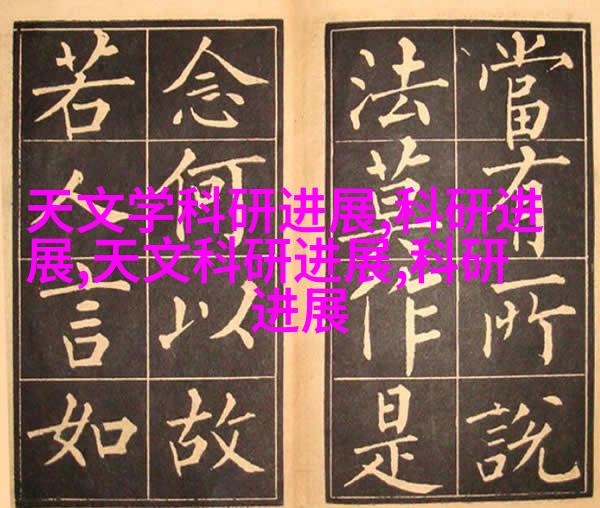 當有所説
法莫作是
念何以故
若人言如
天文学科研进展,科研进
展,天文科研进展,科研
进展